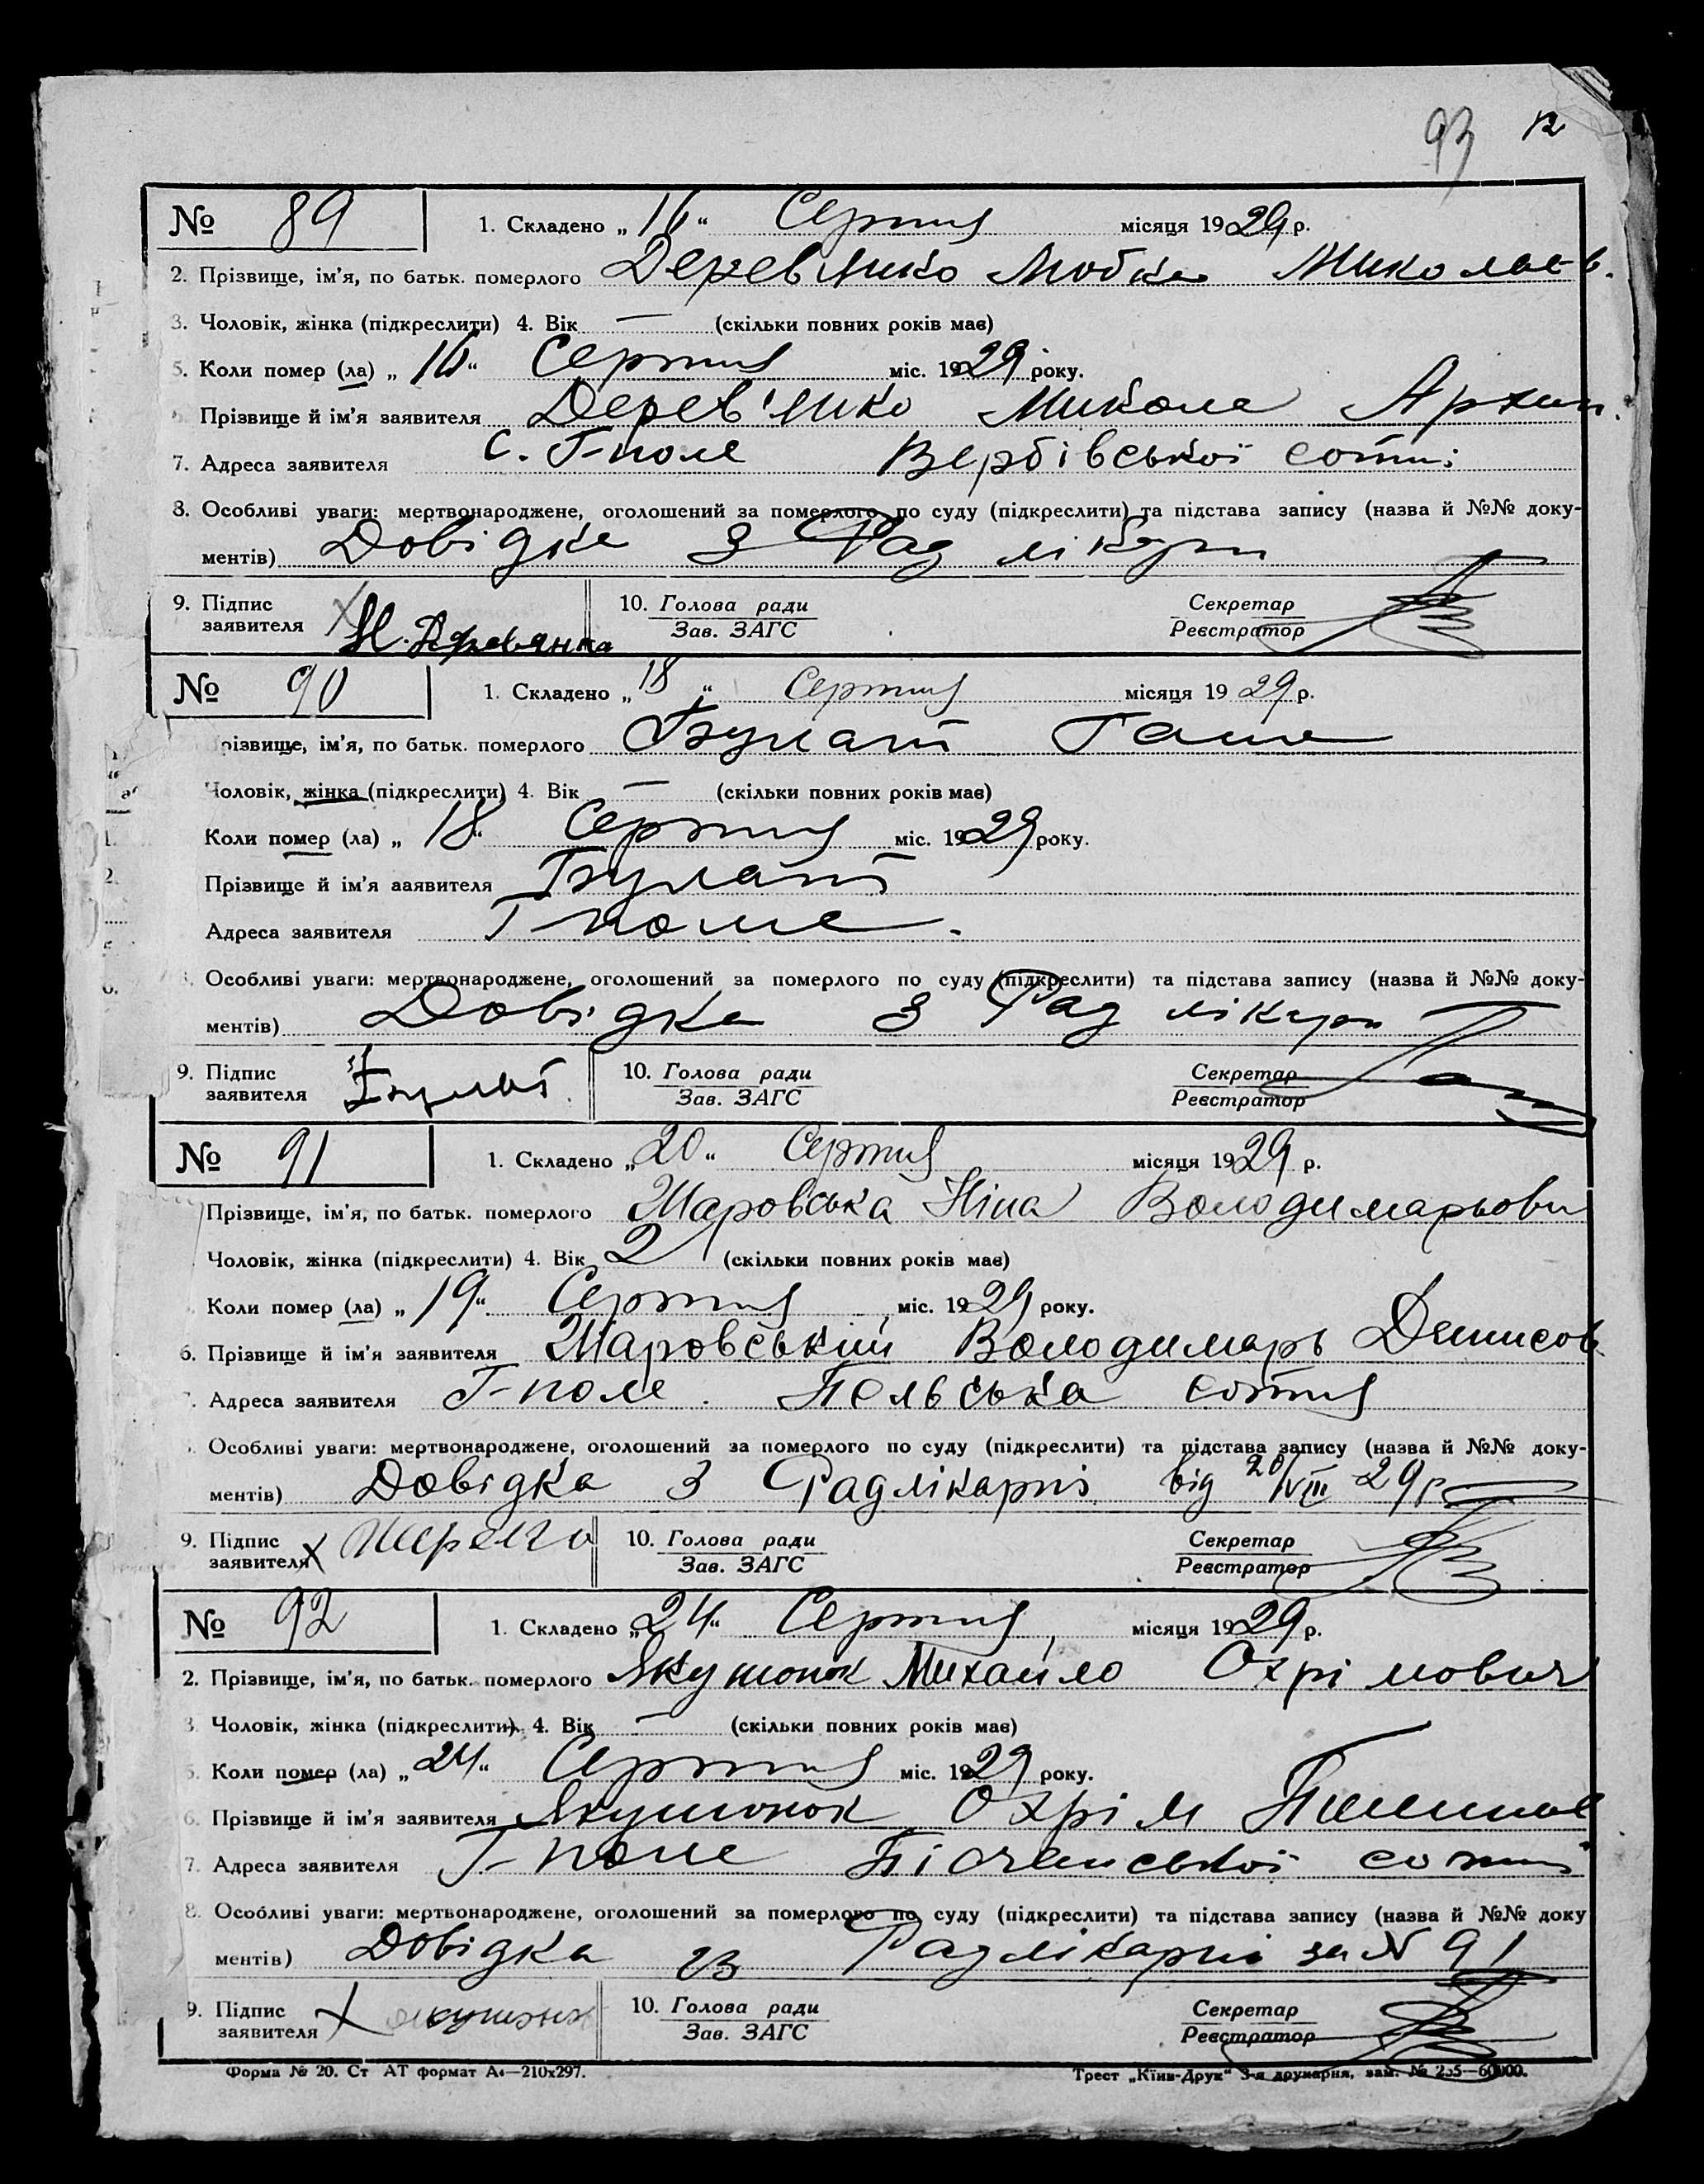 93 12
№ 89 1. Складено „ 16 “ Серпня місяця 1929 р.
2. Прізвище, ім'я, по батьк. померлого Деревянко Любка Миколаєв.
3. Чоловік, жінка (підкреслити) 4. Вік — (скільки повних років має)
5. Коли помер (ла) „ 16 “ Серпня міс. 1929 року.
Прізвище й ім'я заявителя Дерев'янко Микола Архип.
7. Адреса заявителя с. Г-поле Вербівської сотні
8. Особливі уваги: мертвонароджене, оголошений за померлого по суду (підкреслити) та підстава запису (назва й №№ доку-
ментів) Довідка З Рад лікарн
9. Підпис 10. Голова ради Секретар
заявителя Н. Деревянка Зав. ЗАГС Реєстратор
№ 90 1. Складено „ 18 “ Серпня місяця 1929 р.
різвище, ім'я, по батьк. померлого Булат Гаша
Чоловік, жінка (підкреслити) 4. Вік — (скільки повних років має)
Коли помер (ла) „ 18 “ Серпня міс. 1929 року.
Прізвище й ім'я заявителя Булат
Адреса заявителя Г поле.
Особливі уваги: мертвонароджене, оголошений за померлого по суду (підкреслити) та підстава запису (назва й №№ доку-
ментів) Довідка З Рад лікарн
9. Підпис 10. Голова ради Секретар
заявителя Булат. Зав. ЗАГС Реєстратор
№ 91 1. Складено „ 20 “ Серпня місяця 1929 р.
Прізвище, ім'я, по батьк. померлого Шаровська Ніна Володимарьовн
Чоловік, жінка (підкреслити) 4. Вік 2 (скільки повних років має)
Коли помер (ла) „ 19 “ Серпня міс. 1929 року.
6. Прізвище й ім'я заявителя Шаровський Володимарь Денисов
Адреса заявителя Г-поле. Польська сотня
Особливі уваги: мертвонароджене, оголошений за померлого по суду (підкреслити) та підстава запису (назва й №№ доку-
ментів) Довідка З Радлікарні від 20/VIII 29 р.
9. Підпис 10. Голова ради Секретар
заявителя Х Зав. ЗАГС Реєстратор
№ 92 1. Складено „ 24 “ Серпня місяця 1929 р.
2. Прізвище, ім'я, по батьк. померлого Якушонок Михайло Охрімович
3. Чоловік, жінка (підкреслити) 4. Вік — (скільки повних років має)
5. Коли помер (ла) „ 24 “ Серпня міс. 1929 року.
6. Прізвище й ім'я заявителя Якушонок Охрім
7. Адреса заявителя Г-поле Пісчанської сотні
8. Особливі уваги: мертвонароджене, оголошений за померлого по суду (підкреслити) та підстава запису (назва й №№ доку
ментів) Довідка із Радлікарні за N 91
9. Підпис 10. Голова ради Секретар
заявителя Х Зав. ЗАГС Реєстратор
Форма № 20. Ст АТ формат А4—210х297. Трест „Київ-Друк“ 3-я друкарня, зам. № 255—60000.